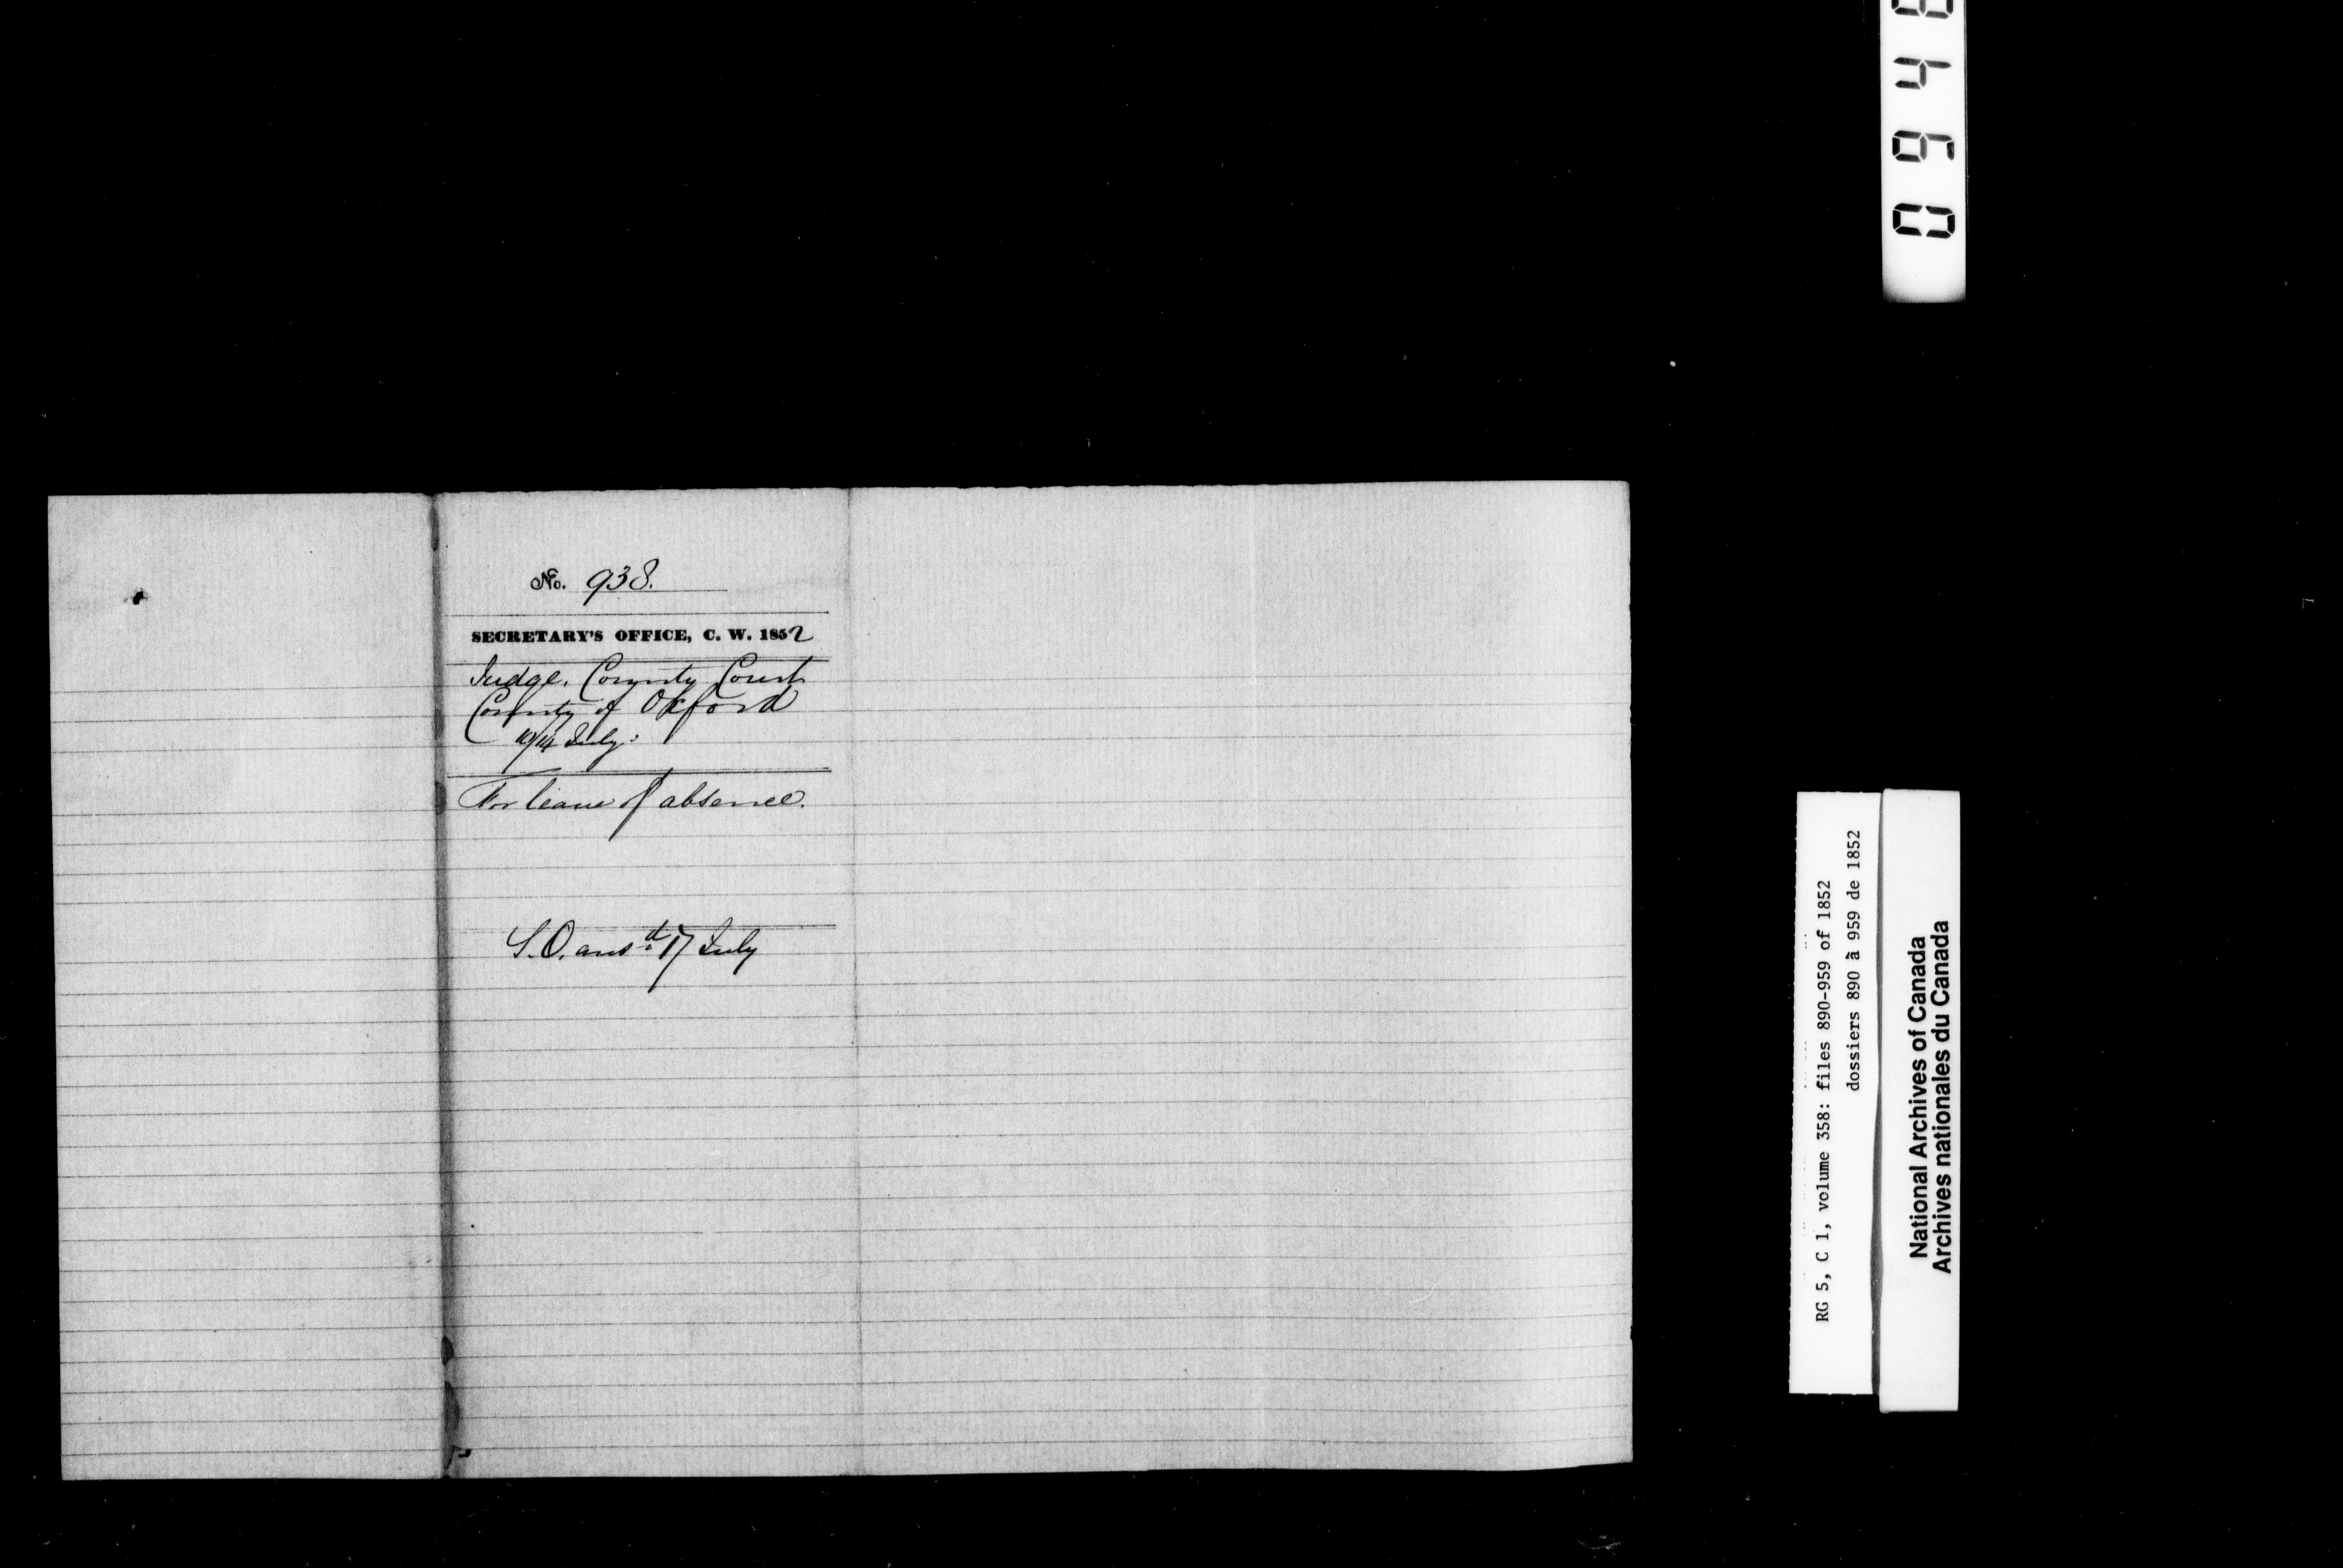 No. 938.
SECRETARY'S OFFICE, C. W. 1852
Judge. County Court
County of Oxford
10/14 July:
For leave of absence.
S.O. ansd 17 July
0 9 4
RG 5, C 1, volume 358: files 890-959 of 1852
dossiers 890 à 959 de 1852
National Archives of Canada
Archives nationales du Canada